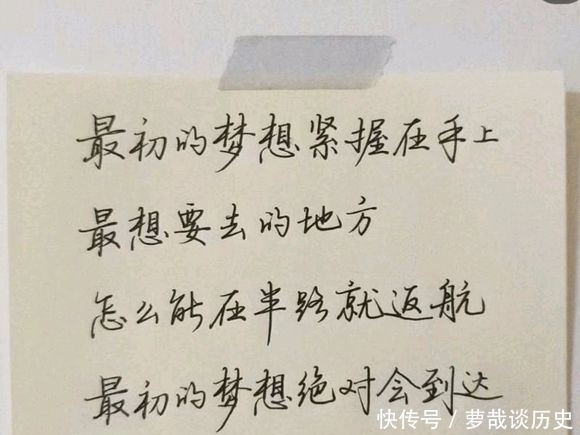 最初的梦想紧握在手上
最想要去的地方
怎么能在半路就返航
最初的梦想绝对会到达
快传号／萝哉谈历史